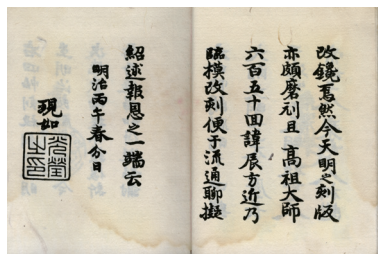 改鐫焉然今天明之刻版
亦頗磨刓且 高祖大師
六百五十回諱辰方近乃
臨摸改刻便于流通聊擬
紹述報恩之一端云
明治丙午春分日
現如
光瑩之印